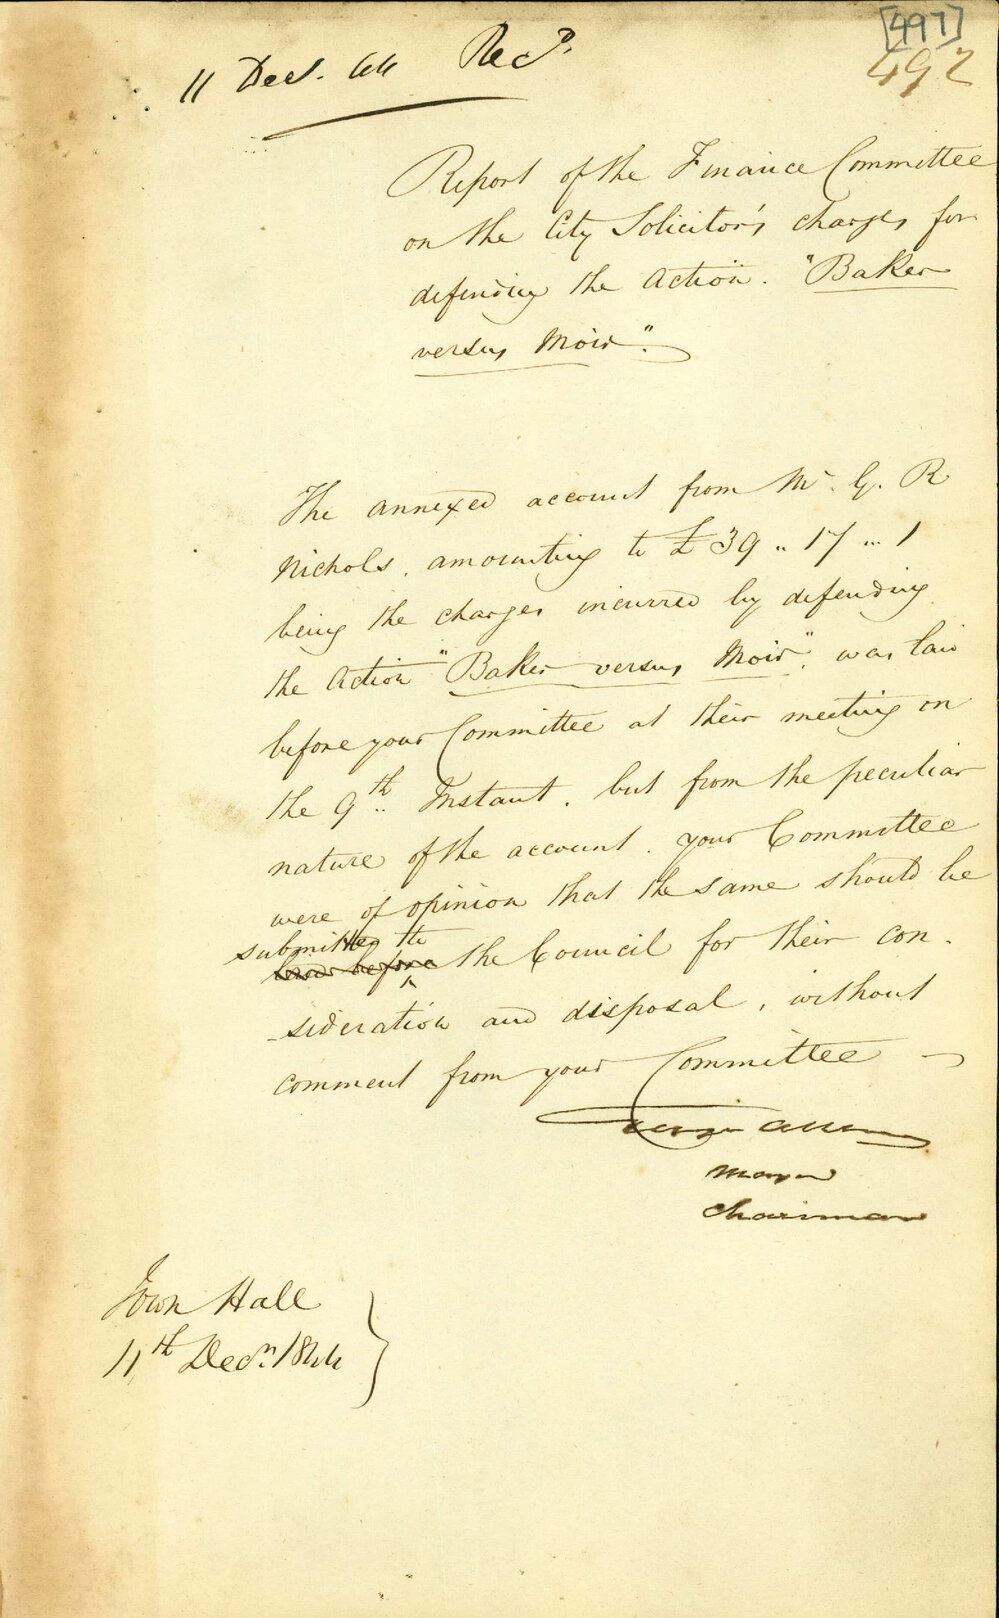 [497]
492
11 Decr. 44 Recd.
Report of the Finance Committee
on the City Solicitor's charges for
defending the Action. "Baker
versus Moir".
The annexed account from Mr. G. R
Nichols, amounting to £39 .. 17 ... 1
being the charges incurred by defending
the Action "Baker versus Moir", was laid
before your Committee at their meeting on
the 9th Instant, but from the peculiar
nature of the account, your Committee
were of opinion that the same should be
submitted to
before the Council for their con-
-sideration and disposal, without
comment from your Committee
George Allen
Mayor
Chairman
Town Hall
11th Decr. 1844